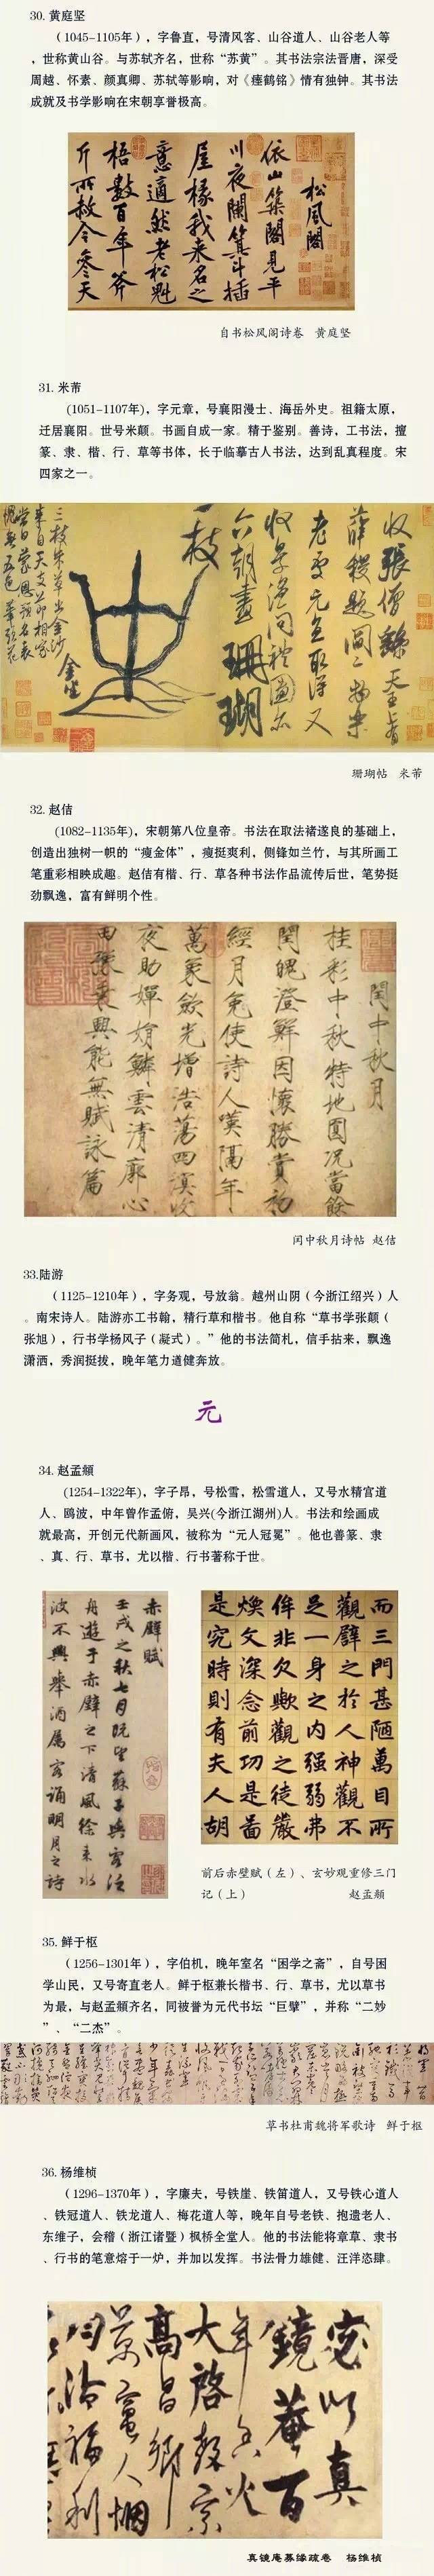 30. 黄庭坚
（1045-1105年），字鲁直，号清风客、山谷道人、山谷老人等
，世称黄山谷。与苏轼齐名，世称“苏黄”。其书法宗法晋唐，深受
周越、怀素、颜真卿、苏轼等影响，对《瘗鹤铭》情有独钟。其书法
成就及书学影响在宋朝享誉极高。
松風閣
依山築閣見平
川夜闌箕斗插
屋椽我来名之
意適然老松魁
梧數百年斧
斤所赦今參天
自书松风阁诗卷 黄庭坚
31. 米芾
(1051-1107年)，字元章，号襄阳漫士、海岳外史。祖籍太原，
迁居襄阳。世号米颠。书画自成一家。精于鉴别。善诗，工书法，擅
篆、隶、楷、行、草等书体，长于临摹古人书法，达到乱真程度。宋
四家之一。
收張僧繇天王上有
薛稷題閻二物樂
老處元直取得又
收景温問禮圖亦
六朝畫珊瑚
一枝
金坐
三枝朱草出金沙
来自天支节相家
當日蒙恩預名表
愧無五色筆頭花
珊瑚帖 米芾
32. 赵佶
(1082-1135年)，宋朝第八位皇帝。书法在取法褚遂良的基础上，
创造出独树一帜的“瘦金体”，瘦挺爽利，侧锋如兰竹，与其所画工
笔重彩相映成趣。赵佶有楷、行、草各种书法作品流传后世，笔势挺
劲飘逸，富有鲜明个性。
閏中秋月
桂彩中秋特地圓况當餘
閏魄澄鮮因懷勝賞初
經月免使詩人嘆隔年
萬象歛光增浩蕩四溟收
夜助嬋娟鱗雲清廓心
田豫乘興能無賦詠篇
闰中秋月诗帖 赵佶
33.陆游
（1125-1210年），字务观，号放翁。越州山阴（今浙江绍兴）人
。南宋诗人。陆游亦工书翰，精行草和楷书。他自称“草书学张颠（
张旭），行书学杨风子（凝式）。”他的书法简札，信手拈来，飘逸
潇洒，秀润挺拔，晚年笔力遒健奔放。
元
34. 赵孟頫
(1254-1322年)，字子昂，号松雪，松雪道人，又号水精宫道
人、鸥波，中年曾作孟俯，吴兴(今浙江湖州)人。书法和绘画成
就最高，开创元代新画风，被称为“元人冠冕”。他也善篆、隶
、真、行、草书，尤以楷、行书著称于世。
赤壁賦
壬戌之秋七月既望蘇子與客泛
舟遊于赤壁之下清風徐来水
波不興舉酒属客誦明月之詩
而三門甚陋萬目所
觀譬之於人神觀不
足一身之内强弱弗
侔非欠歟觀之徒嚴
煥文深念前功是啚
是究時則有夫人胡
前后赤壁赋（左）、玄妙观重修三门
记（上） 赵孟頫
35. 鲜于枢
（1256-1301年），字伯机，晚年室名“困学之斋”，自号困
学山民，又号寄直老人。鲜于枢兼长楷书、行、草书，尤以草书
为最，与赵孟頫齐名，同被誉为元代书坛“巨擘”，并称“二妙
”、“二杰”。
草书杜甫魏将军歌诗 鲜于枢
36. 杨维桢
（1296-1370年），字廉夫，号铁崖、铁笛道人，又号铁心道人
、铁冠道人、铁龙道人、梅花道人等，晚年自号老铁、抱遗老人、
东维子，会稽（浙江诸暨）枫桥全堂人。他的书法能将章草、隶书
、行书的笔意熔于一炉，并加以发挥。书法骨力雄健、汪洋恣肆。
宓以真
鏡菴百
年香火
大啓教宗
高昌鄉
真镜庵募缘疏卷 杨维桢